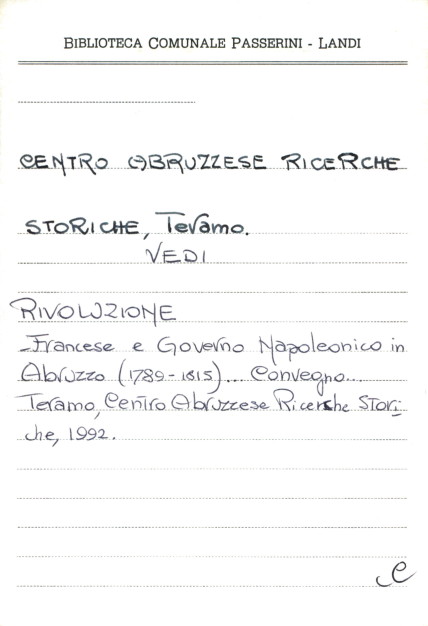 BIBLIOTECA COMUNALE PASSERINI - LANDI
CENTRO ABRUZZESE RICERCHE
STORICHE, Teramo.
VEDI
RIVOLUZIONE
Francese e Governo Napoleonico in
Abruzzo (1789-1815)... Convegno...
Teramo, Centro Abruzzese Ricerche Stori
che, 1992.
C